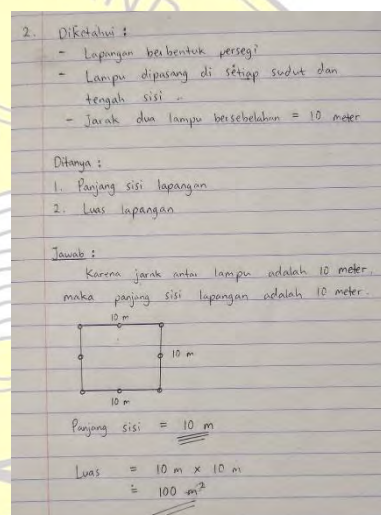 2. Diketahui :
- Lapangan berbentuk persegi
- Lampu dipasang di setiap sudut dan
tengah sisi
- Jarak dua lampu bersebelahan = 10 meter
Ditanya :
1. Panjang sisi lapangan
2. Luas lapangan
Jawab :
Karena jarak antar lampu adalah 10 meter.
maka panjang sisi lapangan adalah 10 meter.
10 m
10 m
10 m
Panjang sisi = 10 m
Luas = 10 m x 10 m
= 100 m²